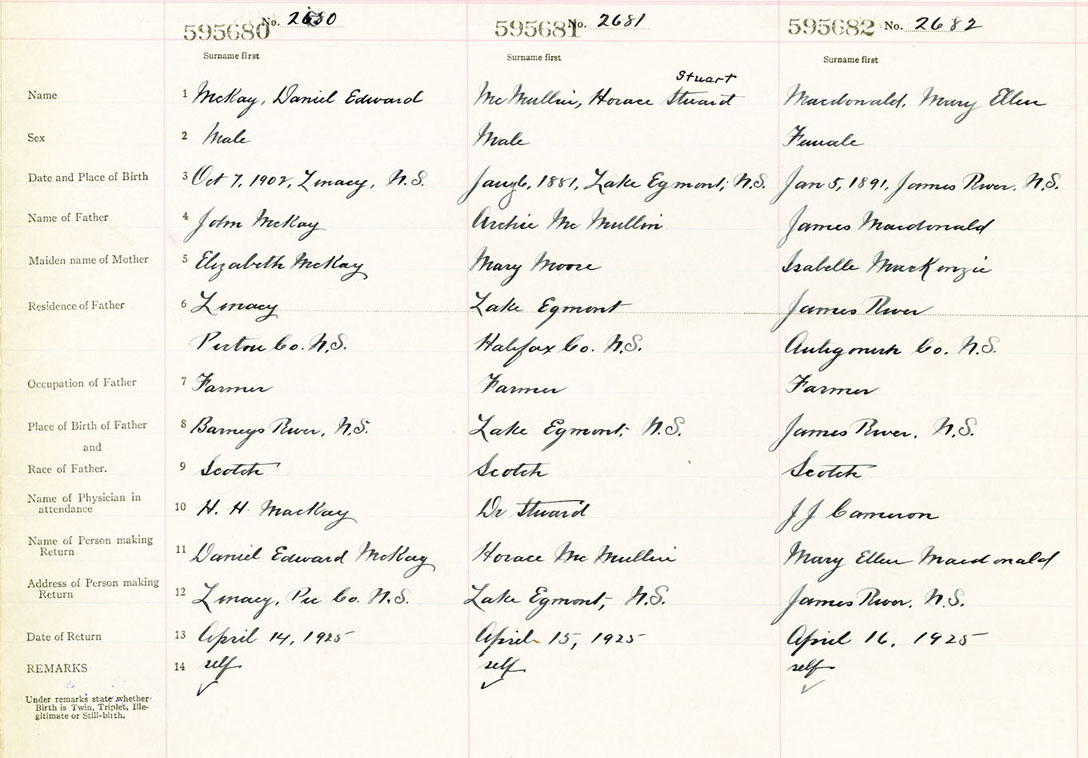 595680 No. 2680 595681 No. 2681 595682 No. 2682
Surname first Surname first Surname first
Stuart
Name 1 McKay, Daniel Edward McMullin, Horace Stuard Macdonald, Mary Ellen
Sex 2 Male Male Female
Date and Place of Birth 3 Oct 7, 1902, Linacy, N.S. Jany 6, 1881, Lake Egmont, N.S. Jan 5, 1891, James River, N.S.
Name of Father 4 John McKay Archie McMullin James Macdonald
Maiden name of Mother 5 Elizabeth McKay Mary Moore Isabelle MacKenzie
Residence of Father 6 Linacy Lake Egmont James River
Pictou Co. N.S. Halifax Co. N.S. Antigonish Co. N.S.
Occupation of Father 7 Farmer Farmer Farmer
Place of Birth of Father 8 Barneys River, N.S. Lake Egmont, N.S. James River, N.S.
and
Race of Father. 9 Scotch Scotch Scotch
Name of Physician in attendance 10 H. H. MacKay Dr Stuard J J Cameron
Name of Person making Return 11 Daniel Edward McKay Horace McMullin Mary Ellen Macdonald
Address of Person making Return 12 Linacy, Pic Co. N.S. Lake Egmont, N.S. James River, N.S.
Date of Return 13 April 14, 1925 April 15, 1925 April 16, 1925
REMARKS 14 self self self
Under remarks state whether
Birth is Twin, Triplet, Ille-
gitimate or Still-birth.